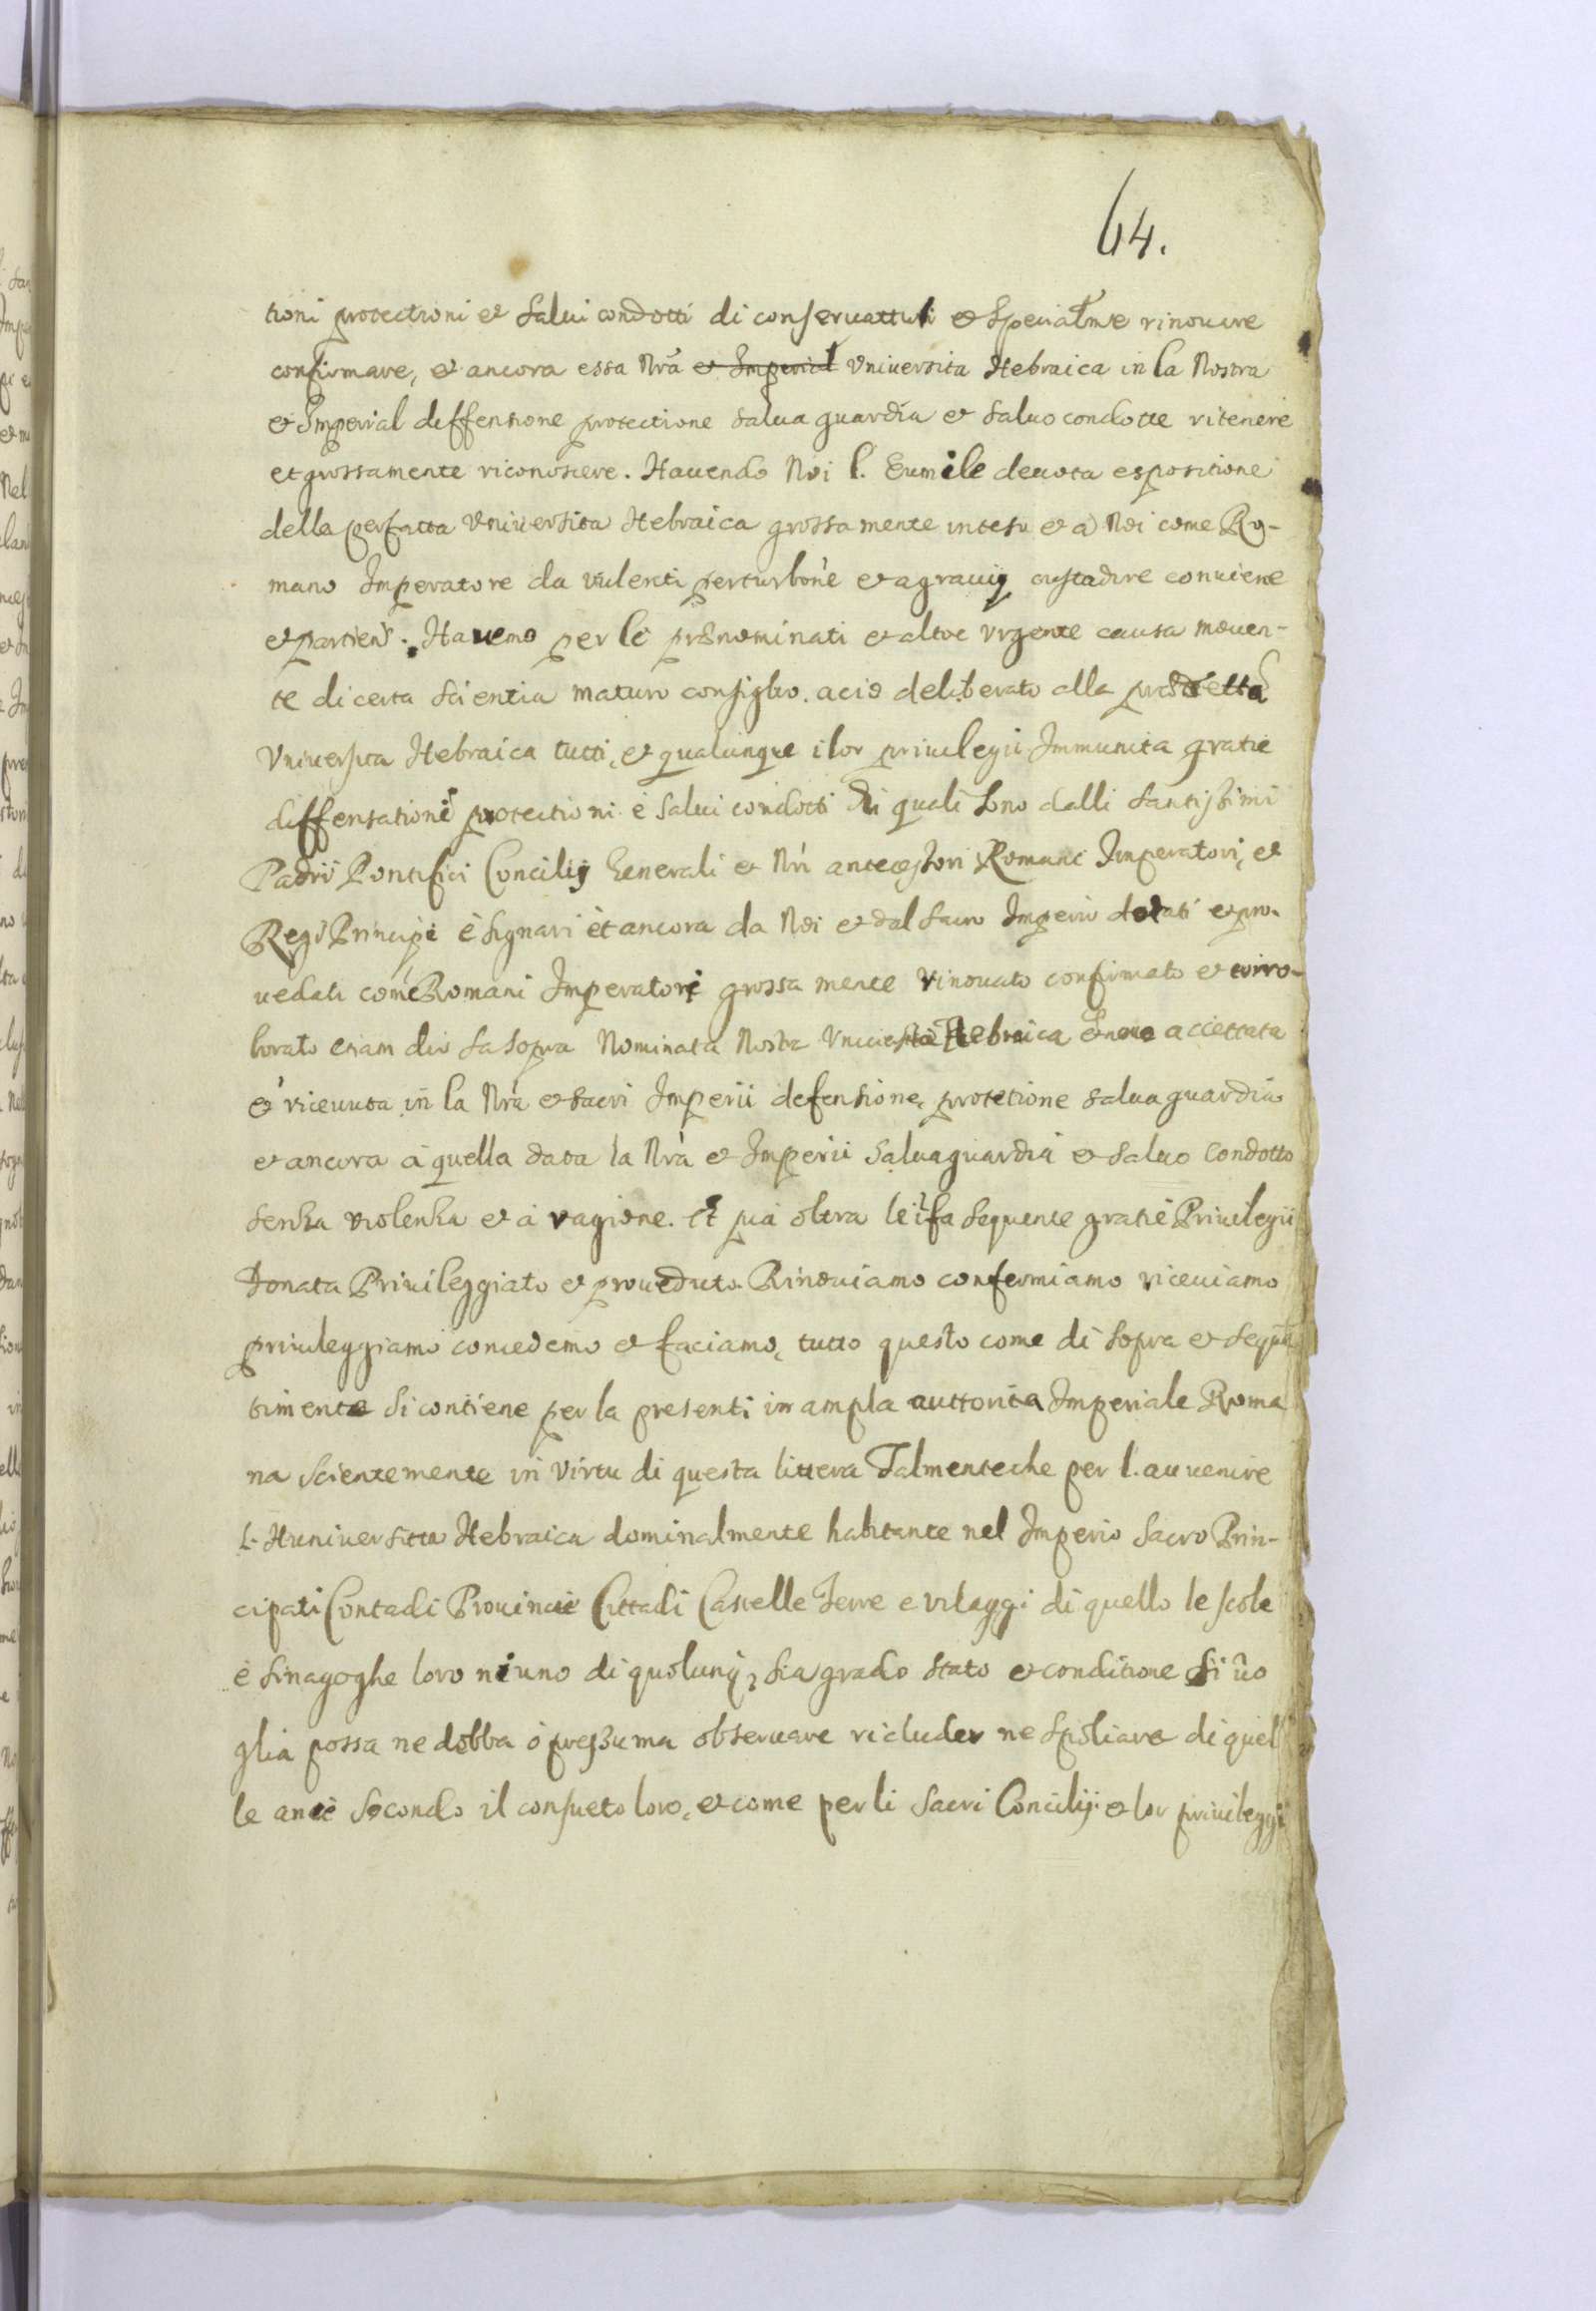 64.
tioni protectioni et salui condotti di conseruattuli et spetialme rinouere
confirmare, et ancora essa Nrã et Imperial Vniuersita Hebraica in la Nostra
et Imperial deffensione protectione salua guardia et saluo condotte ritenere
et grossamente riconoscere. Hauendo Noi l. Eumile deuota espositione
della perfatta Vniuersita Hebraica grossa mente intesu et a Noi come Ro-
mano Imperatore da uiolenti perturbone et agrauij custadire conuiene
et partiens. Hauemo per le prenominati et altre vrgente causa mouen-
te di certa scientia maturo consiglio. acio deliberato alla predetta
Vniuersita Hebraica tutti, et qualunque i lor priuilegii Immunita gratie
diffensationi protectioni è salui condotti di quali sono dalli santissimi
Padri Pontifici Concilij Generali et Nri antecessori Romani Imperatori, et
Regi Principi è signari èt ancora da Noi et dal sacro Imperio dotati et pro-
uedati come Romani Imperatori grossa mente rinouato confirmato et corro-
borato etiam dio la sopra Nominata Nostra Vniuersita Hebraica accettata
et riceuuta in la Nrà et sacri Imperii defensione, protetione salua guardia
et ancora à quella data la Nrà et Imperii saluaguardia et saluo Condotto
senza violenza et à ragione. Et più oltra le ifa sequente gratie Priuilegii
Donata Priuileggiato et proueduto. Rinouiamo confermiamo riceuiamo
priuileggiamo concedemo et faciamo, tutto questo come di sopra et sequen
timente si contiene per la presenti in ampla auttorita Imperiale Roma
na scientemente in virtu di questa littera Talmenteche per l. auuenire
L. Huniuersitta Hebraica dominalmente habitante nel Imperio Sacro Prin-
cipati Contadi Prouincie Cittadi Castelle Terre e vilaggi di quello le scole
è sinagoghe loro niuno di qualunq; sia grado stato et conditione si uo
glia possa ne dobba ò pressuma obseruare ricluder ne spoliare di quel
le ancè secondo il consueto loro, et come per li sacri Concilij et lor priuileggi